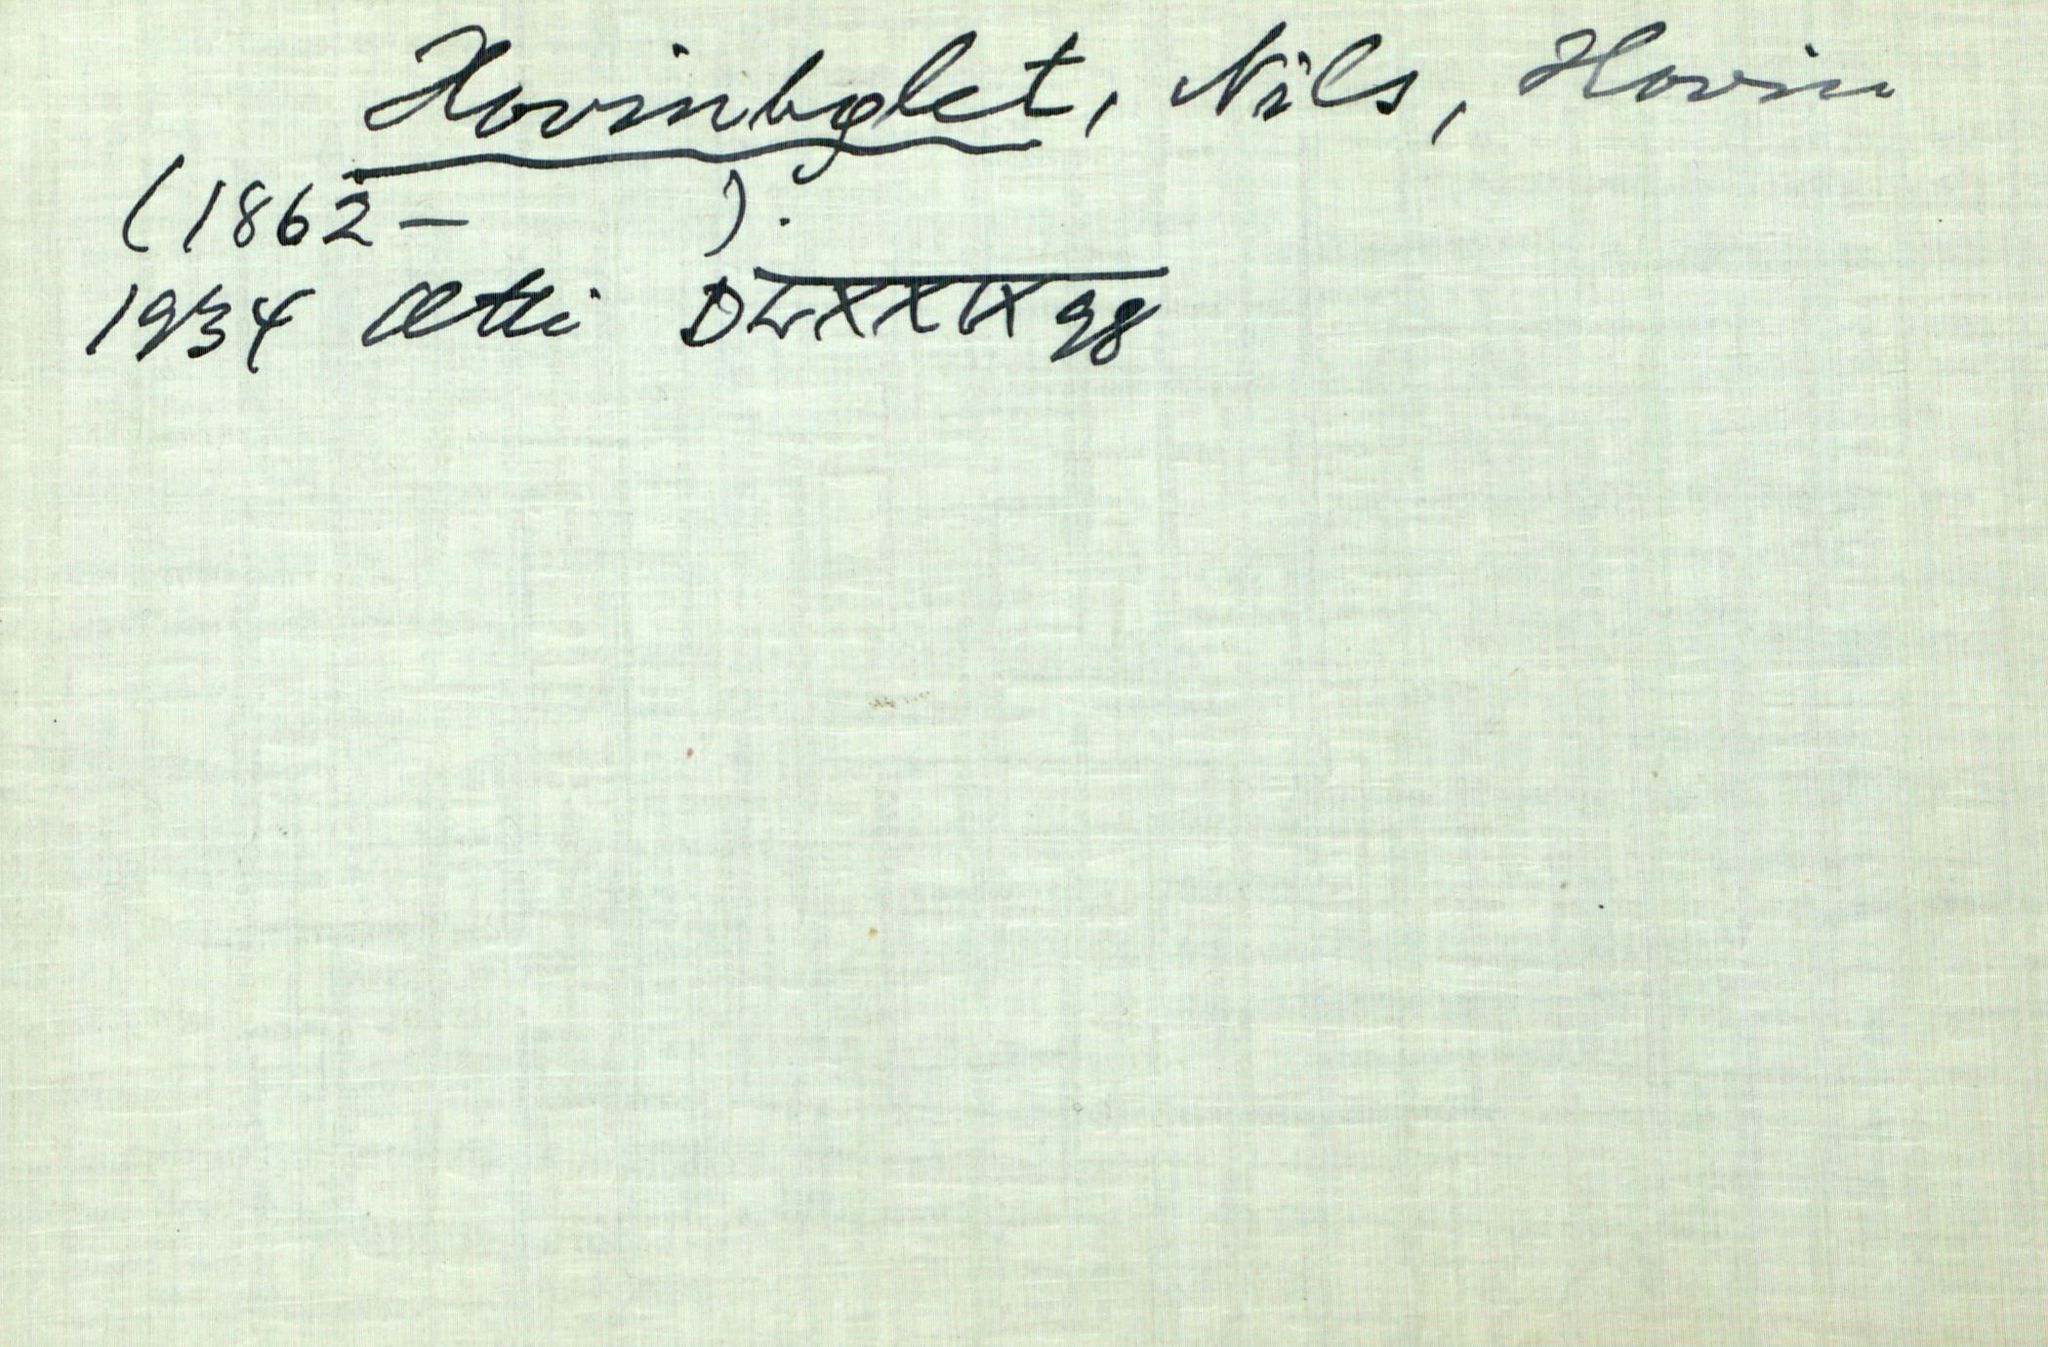 Hovinbølet, Nils, Hovin
(1862 – ).
1934 Ætti DLXXIX 98